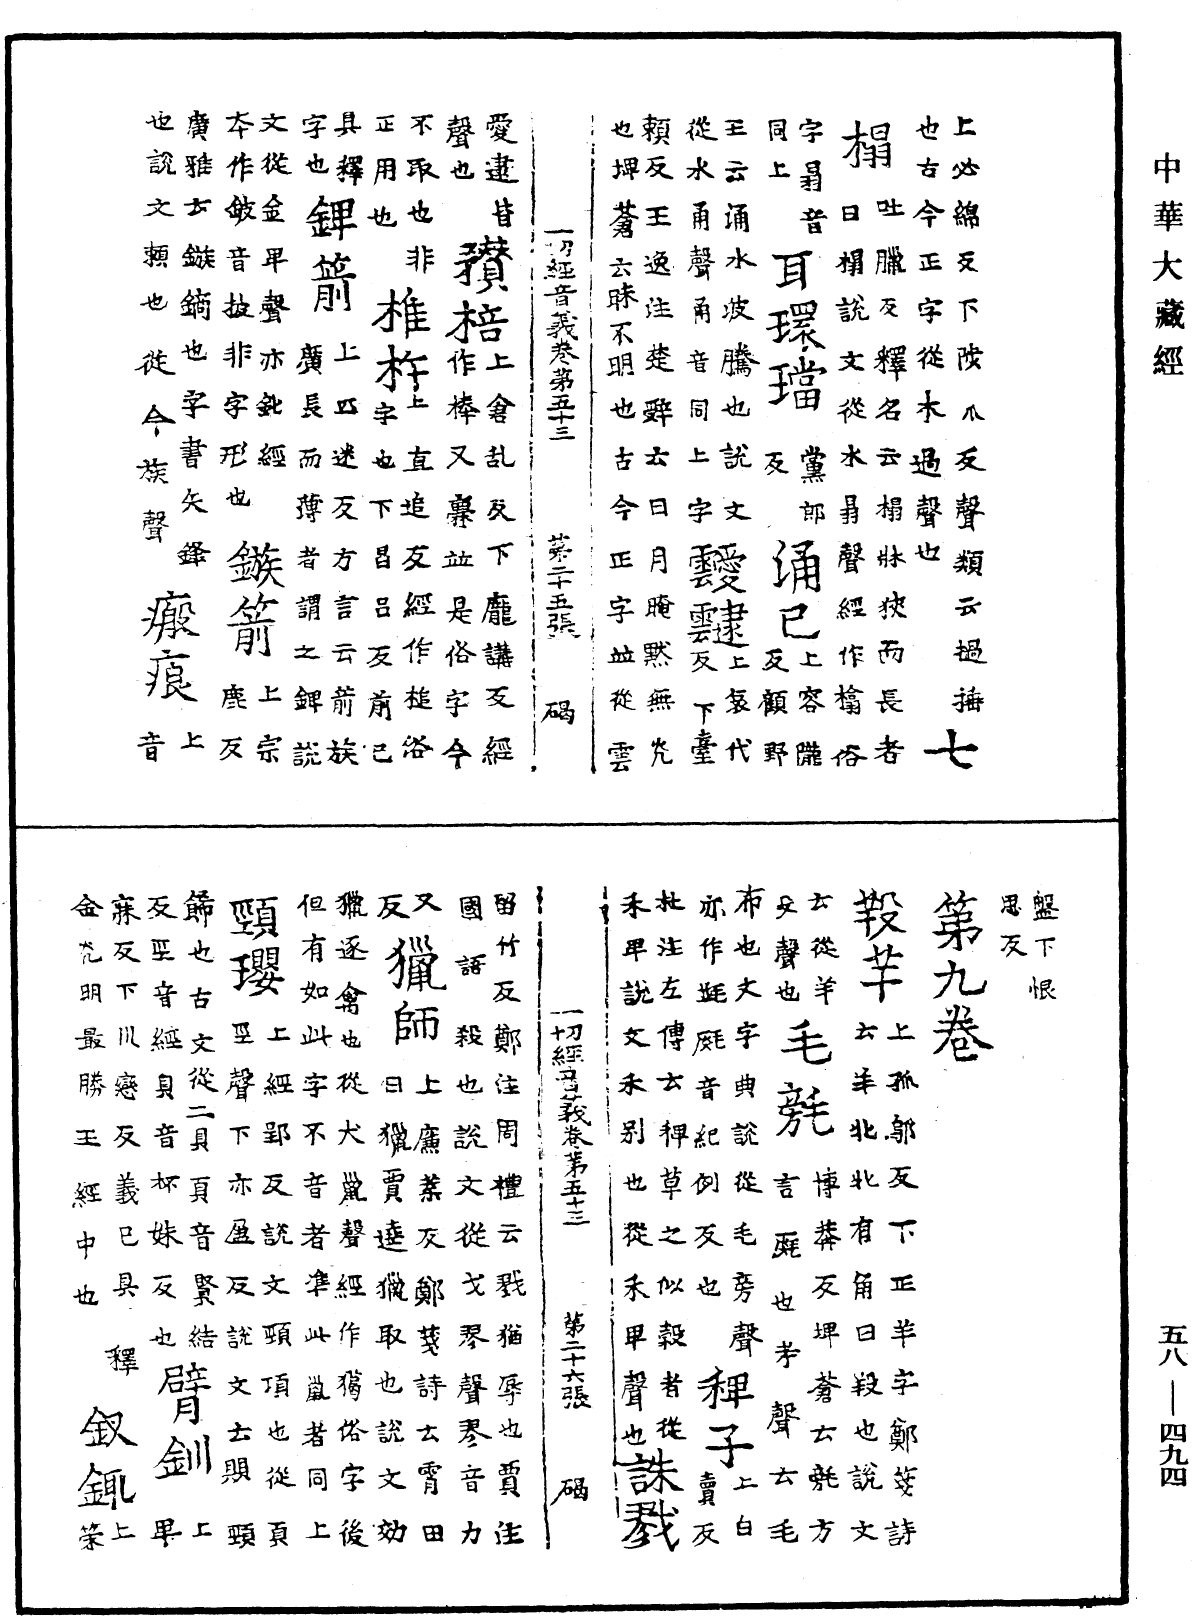 中華大藏經
上必綿反下陟爪反聲類云撾捶
也古今正字從木過聲也 七
榻 吐臘反釋名云榻牀狹而長者
曰榻說文從木𦐇聲經作㯓俗
字𦐇音
同上 耳環璫 黨郎反 涌已 上容隴反顧野
王云涌水波騰也說文
從水甬聲甬音同上字 靉靆 上哀代反下臺
賴反王逸注楚辭云日月晻黕無光
也埤蒼云昧不明也古今正字並從雲
一切經音義卷第五十三 第二十五張 碣
愛逮皆
聲也 穳棓 上倉乱反下龐講反經
作棒又𣞙並是俗字今
不取也非
正用也 椎杵 上直追反經作槌俗
字也下昌呂反前已
具釋
字也 錍箭 上匹迷反方言云箭族
廣長而薄者謂之錍說
文從金卑聲亦鈚經
本作鈹音披非字形也 鏃箭 上宗
鹿反
廣雅云鏃鏑也字書矢鋒
也說文賴也從金族聲 瘢痕 上
音
盤下恨
恩反
第九卷
羖羊 上孤鄔反下正羊字鄭箋詩
云羊牝牝有角曰羖也說文
云從羊
殳聲也 毛㲠 博莽反埤蒼云㲠方
言㲠也考聲云毛
布也文字典說從毛旁聲
亦作𣯊㲠音紀例反也 稗子 上白
賣反
杜注左傳云稗草之似穀者從
禾卑說文禾別也從禾卑聲也 誅戮
一切經音義卷第五十三 第二十六張 碣
留竹反鄭注周禮云戮猶辱也賈注
國語殺也說文從戈翏聲翏音力
又
反 獵師 上廉葉反鄭箋詩云宵田
曰獵賈逵獵取也說文効
獵逐禽也從犬巤聲經作獦俗字後
但有如此字不音者準此巤者同上
頸瓔 上經郢反說文頸項也從頁
巠聲下亦盈反說文云䝨頸
飾也古文從二貝頁音賢結
反巠音經貝音杯妹反也 臂釧 上
卑
寐反下川戀反義已具釋
金光明最勝王經中也 釵𨥁 上
策
五八—四九四